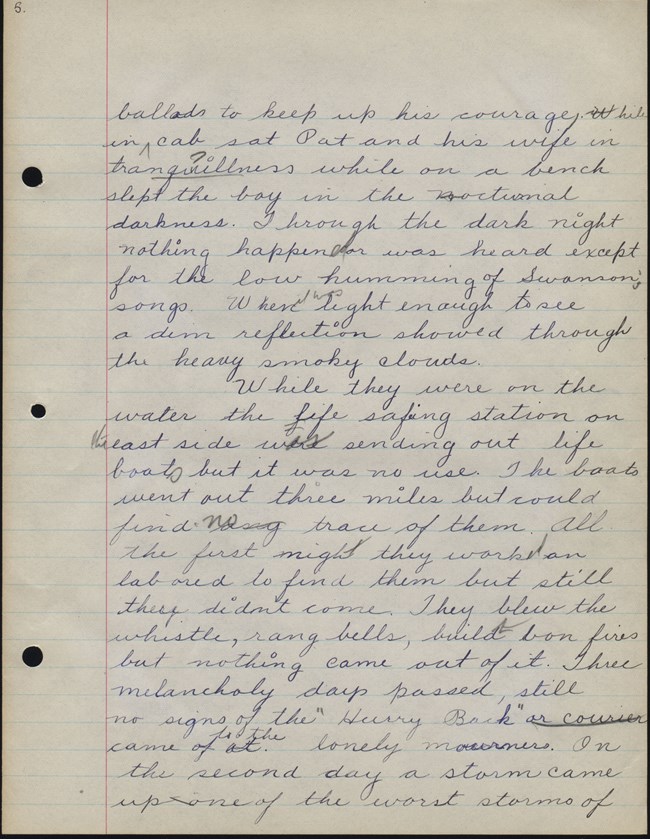 8.
ballads to keep up his courage. While
in cab sat Pat and his wife in
tranquillness while on a bench
slept the boy in the nocturnal
darkness. Through the dark night
nothing happend or was heard except
for the low humming of Swanson's
songs. When it was light enough to see
a dim reflection showed through
the heavy smoky clouds.
While they were on the
water the life saving station on
the east side was sending out life
boats but it was no use. The boats
went out three miles but could
find no trace of them. All
the first might they worked an
labored to find them but still
they didnt come. They blew the
whistle, rang bells, built bon fires
but nothing came out of it. Three
melancholy days passed, still
no signs of the "Hurry Back" or courier
came to the lonely mourners. On
the second day a storm came
up one of the worst storms of